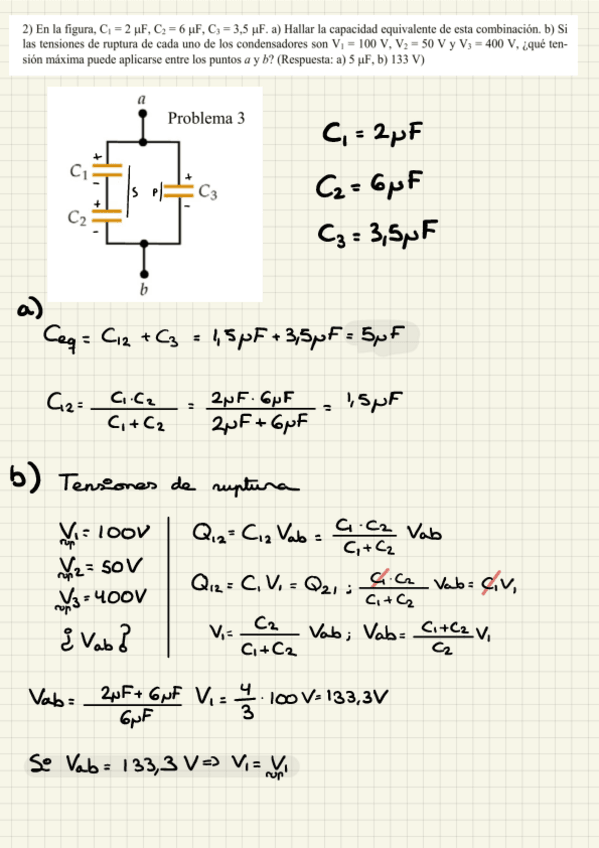 2) En la figura, C₁ = 2 μF, C₂ = 6 μF, C₃ = 3,5 μF. a) Hallar la capacidad equivalente de esta combinación. b) Si
las tensiones de ruptura de cada uno de los condensadores son V₁ = 100 V, V₂ = 50 V y V₃ = 400 V, ¿qué ten-
sión máxima puede aplicarse entre los puntos a y b? (Respuesta: a) 5 μF, b) 133 V)
a
Problema 3
+
C₁
-
+
C₂
-
S
P
+
C₃
-
b
C₁ = 2μF
C₂ = 6μF
C₃ = 3,5μF
a)
Ceq = C₁₂ + C₃ = 1,5μF + 3,5μF = 5μF
C₁₂ = C₁·C₂ / C₁ + C₂ = 2μF · 6μF / 2μF + 6μF = 1,5μF
b) Tensiones de ruptura
V₁rup = 100V
V₂rup = 50V
V₃rup = 400V
¿Vab?
Q₁₂ = C₁₂ Vab = C₁·C₂ / C₁ + C₂ Vab
Q₁₂ = C₁ V₁ = Q₂₁ ; C₁·C₂ / C₁ + C₂ Vab = C₁V₁
V₁ = C₂ / C₁ + C₂ Vab ; Vab = C₁ + C₂ / C₂ V₁
Vab = 2μF + 6μF / 6μF V₁ = 4/3 · 100V = 133,3V
Si Vab = 133,3 V ⇒ V₁ = V₁rup